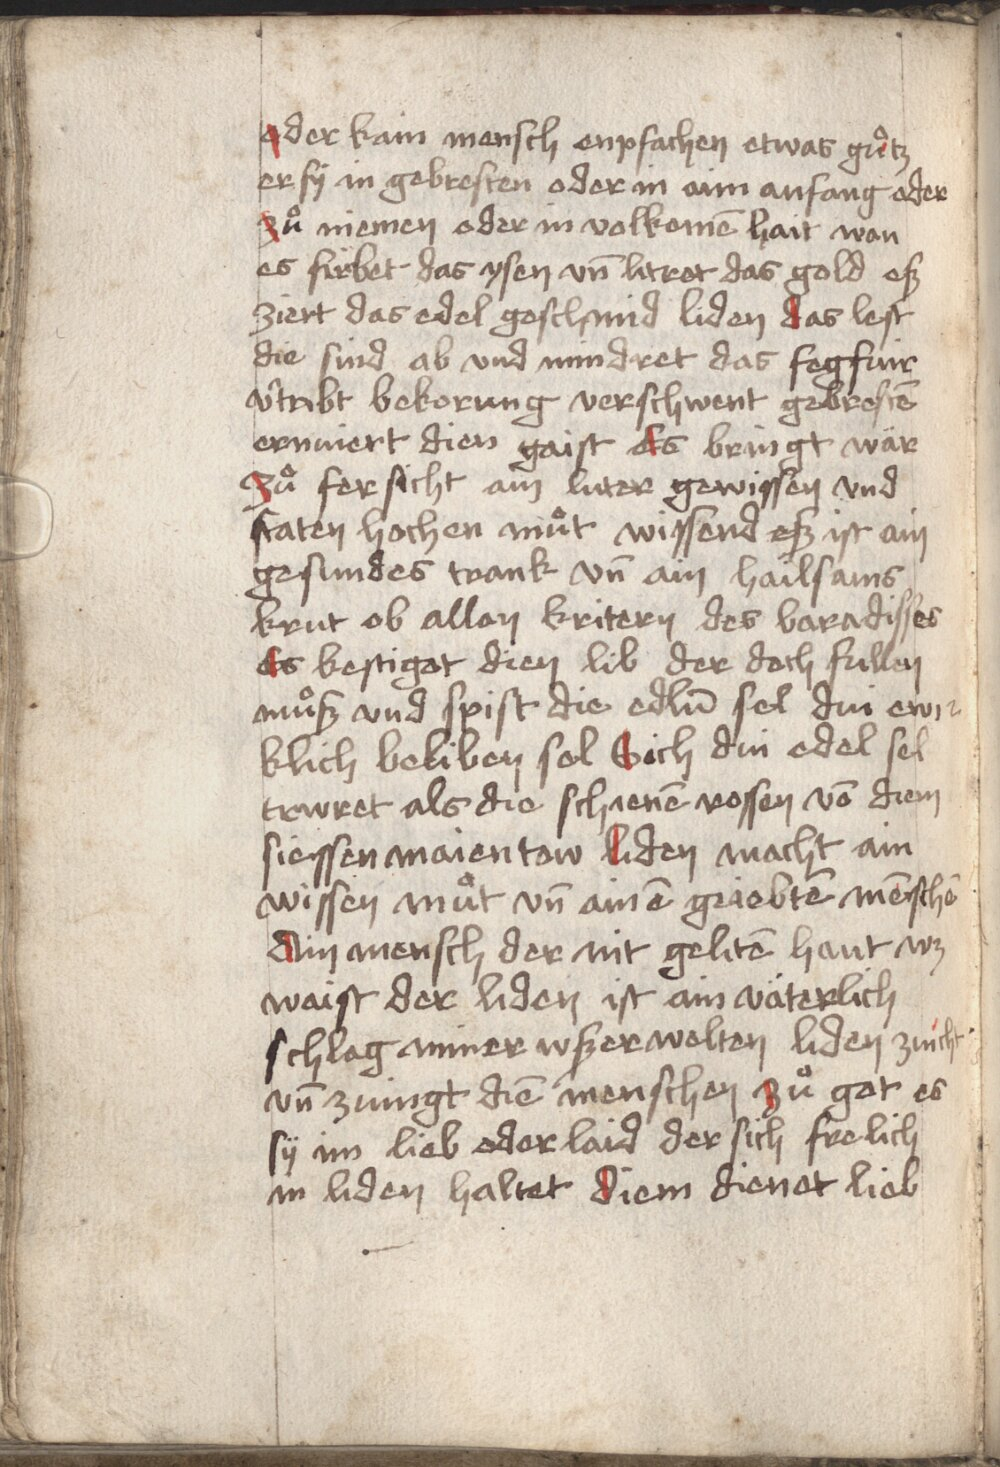 oder kain mensch enpfachen etwas guͦtz
er sÿ in gebresten oder in aim anfang oder
zuͦ niemen oder in volkomē hait wan
es fúrbet das ysen vn̄ litret das gold eß
ziert das edel geschmid liden das lest
die sind ab vnd mindret das fegfuir
v̓tribt bekorung verschwent gebrestē
ernuiert dien gaist Es bringt wär
zuͦ fersicht ain luter gewissen vnd
staten hochen muͦt wissend eß ist ain
gesundes trank vn̄ ain hailsams
krut ob allen kritern des baradisses
es kestiget dien lib der doch fullen
muͦß vnd spist die edlū sel dui ewi
klich beliben sol Sich dui edel sel
trwret als die schienē rossen vō diem
siessen maientow liden macht ain
wissen muͦt vn̄ ainē griebtē mēschē
Ain mensch der nit gelitē haut wz
waist der liden ist ain väterlich
schlag miner vßerwelten liden zuicht
vn̄ zwingt diē menschen zuͦ got es
sÿ im lieb oder laid der sich frelich
in liden haltet diem dienet lieb